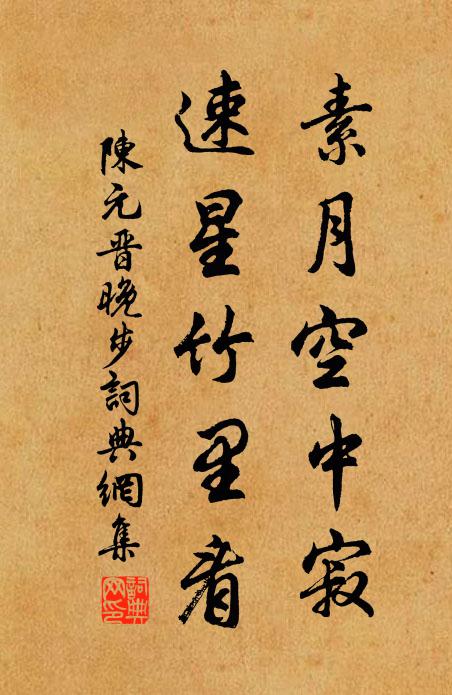 素月空中寂
疎星竹里看
陳元晉晚步詞典網集
詞典網印